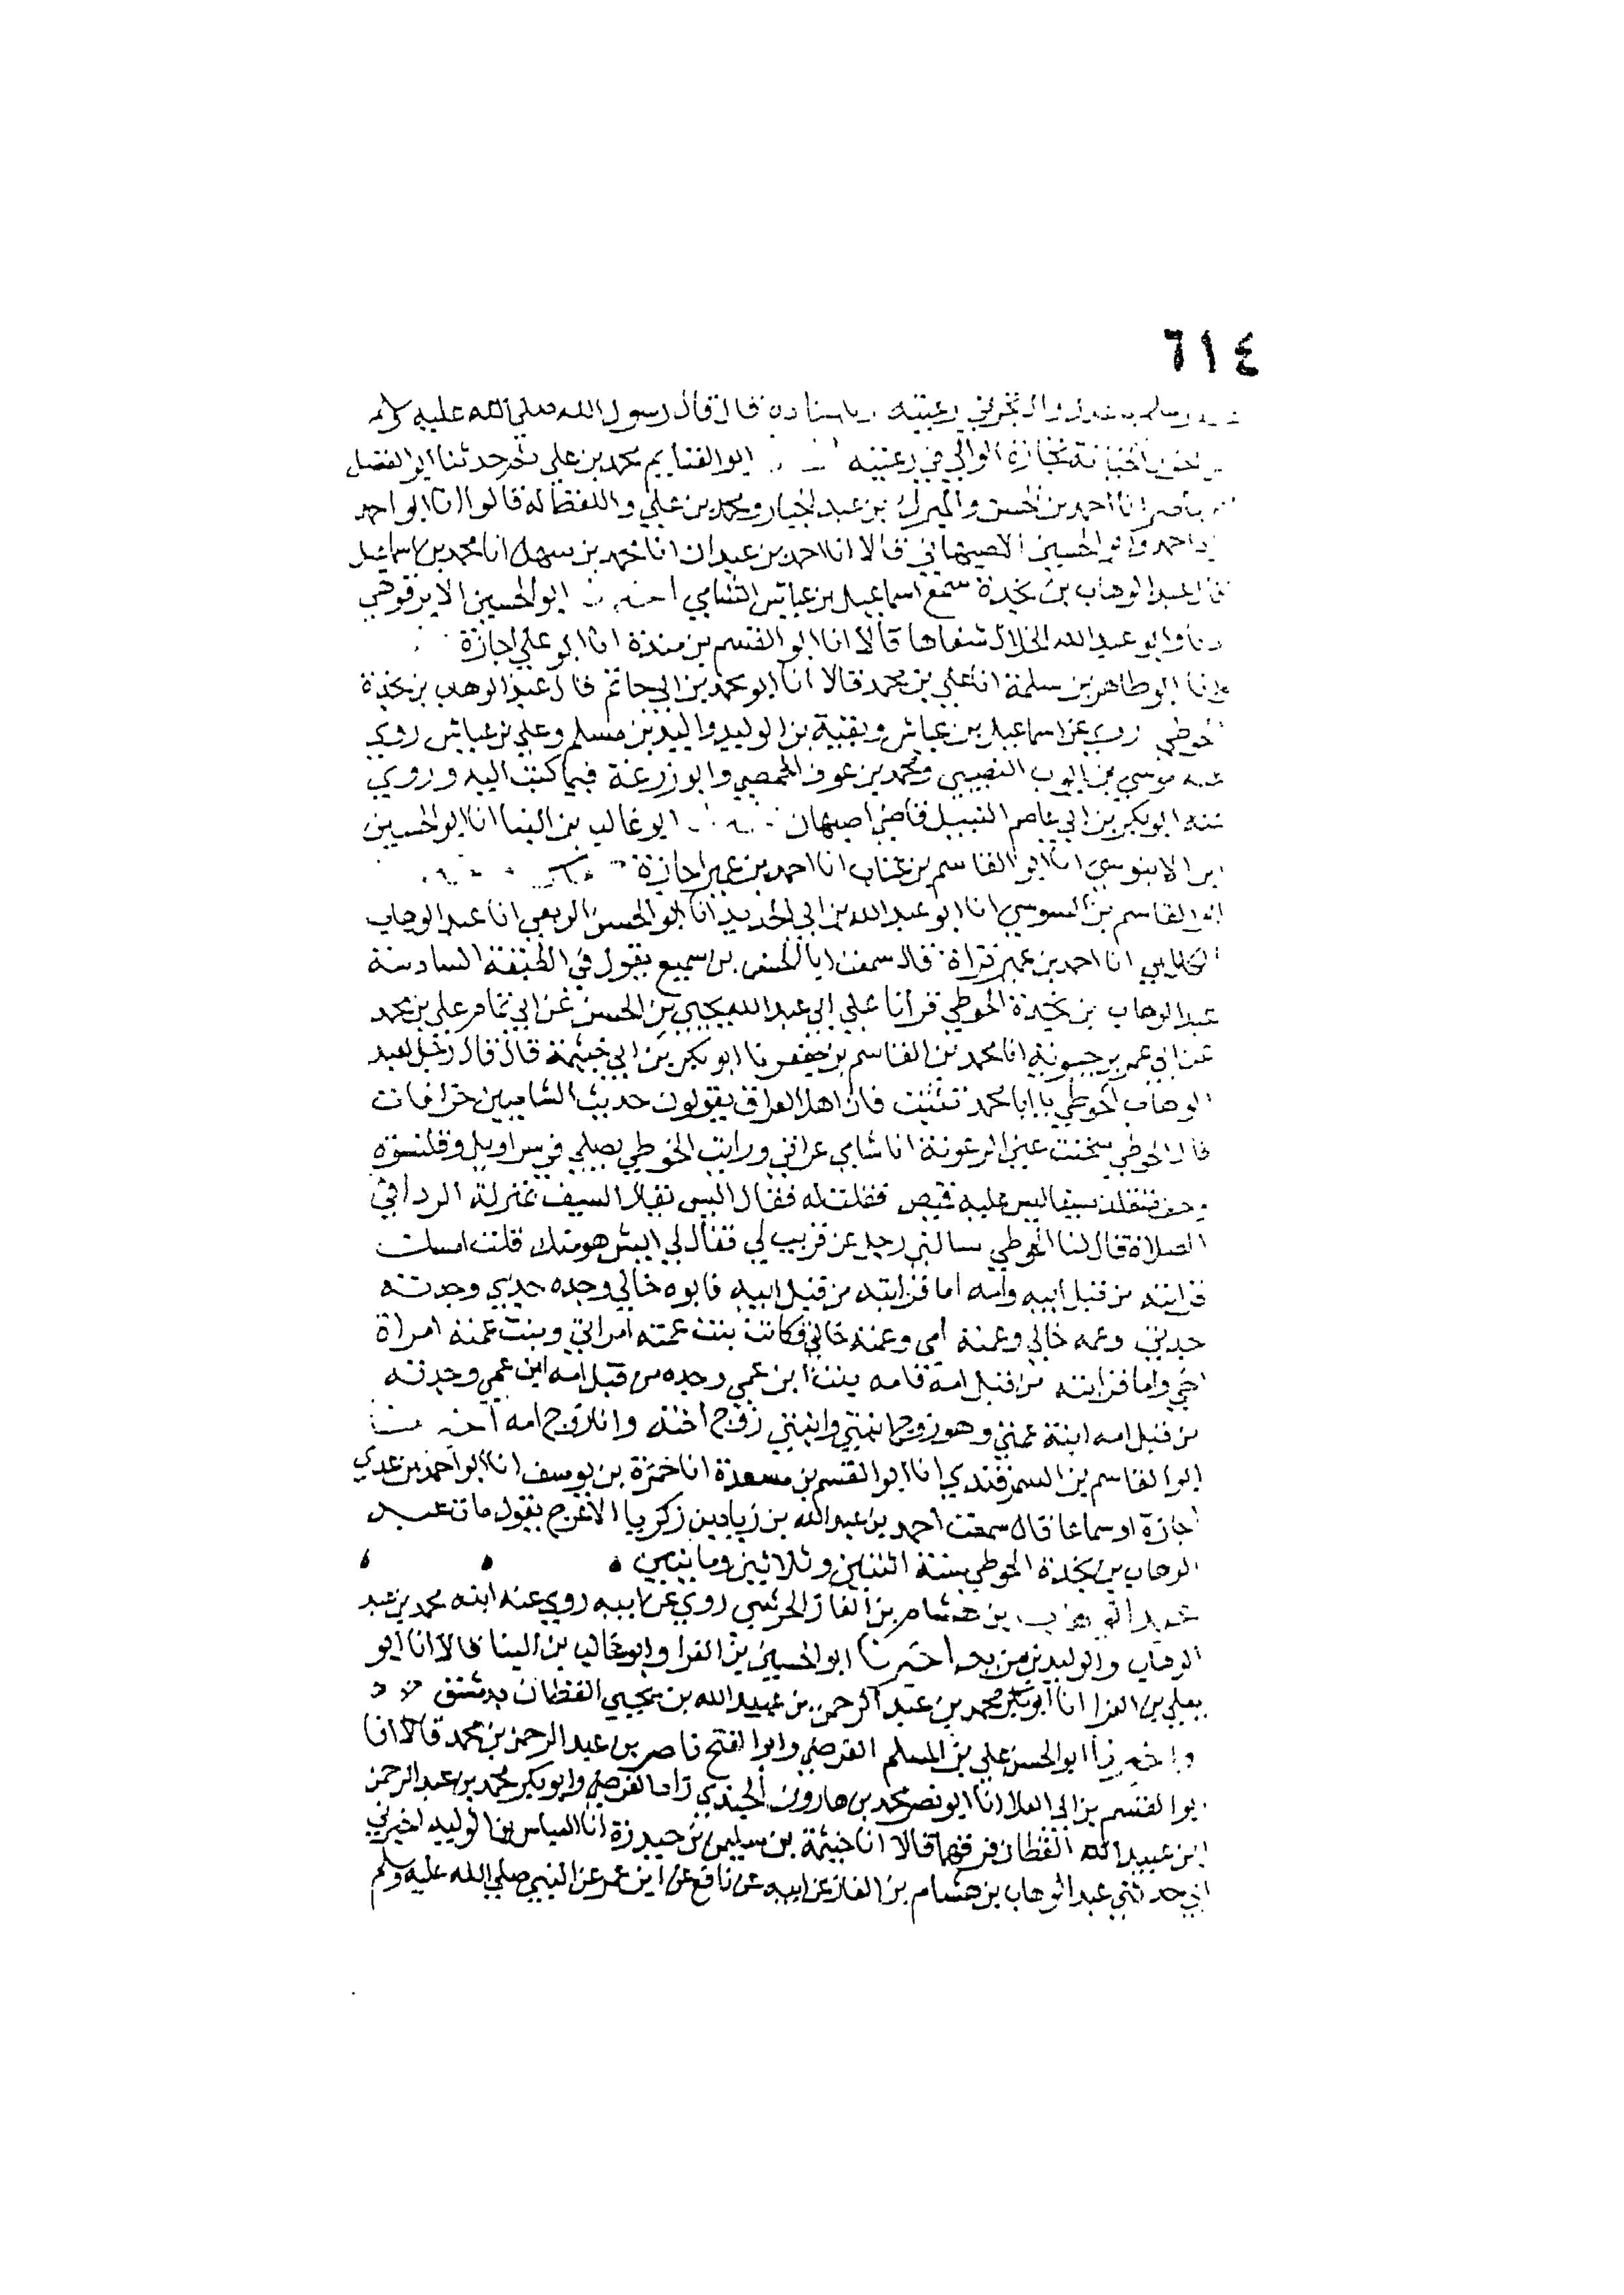 ٦١٤
وسلم يقول والي تجر في رعيته وباسناده قال قال رسول الله صلى الله عليه وسلم
اخون الخيانة تجارة الوالي في رعيته ابو الغنايم محمد بن علي ثم حدثنا ابو الفضل
بن ناصر انا احمد بن الحسن والمبرك بن عبد الجبار ومحمد بن علي واللفظ له قالوا انا ابو احمد
زاد احمد وابو الحسين الاصبهاني قالا انا احمد بن عبدان انا محمد بن سهل انا محمد بن اسماعيل
قال عبد الوهاب بن نجدة سمع اسماعيل بن عياش الشامي ابو الحسين الابرقوهي
وابو عبد الله الخلال شفاها قالا انا ابو القسم بن مندة انا ابو علي اجازة
وانا ابو طاهر بن سلمة انا علي بن محمد قالا انا ابو محمد بن ابي حاتم قال عبد الوهاب بن نجدة
الحوطي روى عن اسماعيل بن عياش وبقية بن الوليد والوليد بن مسلم وعلي بن عياش روى
عنه موسى بن ايوب النصيبي ومحمد بن عوف الحمصي وابو زرعة فيما كتب اليه وروى
عنه ابو بكر بن ابي عاصم النبيل قاضي اصبهان ابو غالب بن البنا انا ابو الحسين
بن الابنوسي انا ابو القاسم بن عتاب انا احمد بن عمير اجازة
ابو القاسم بن السوسي انا ابو عبد الله بن ابي الحديد انا ابو الحسن الربعي انا عبد الوهاب
الكلابي انا احمد بن عمير قراة قال سمعت ابا الحسن بن سميع يقول في الطبقة السادسة
عبد الوهاب بن نجدة الحوطي قرأنا على ابي عبد الله يحيى بن الحسن عن ابي تمام علي بن محمد
عن ابي عمر بن حيوية انا محمد بن القاسم بن جعفر نا ابو بكر بن ابي خيثمة قال قال رجل لعبد
الوهاب الحوطي يا ابا محمد تثبت فان اهل العراق يقولون حديث الشاميين خرافات
قال الحوطي سخنت عين الرعونة انا شامي عراقي ورايت الحوطي يصلي في سراويل وقلنسوة
متقلد سيفا ليس عليه قميص فقلت له فقال اليس يقال السيف بمنزلة الردا في
الصلاة قال لنا الحوطي سالني رجل عن قريب لي فقال لي ايش هو منك قلت امسك
قرابته من قبل ابيه وامه اما قرابته من قبل ابيه فابوه خالي وجده جدي وجدته
جدتي وعمه خالي وعمته امي وعمته خالتي فكانت بنت عمته امراتي وبنت عمته امراة
اخي واما قرابته من قبل امه فامه بنت ابن عمي وجده من قبل امه ابن عمي وجدته
من قبل امه ابنة عمتي وهو زوج ابنتي وابنتي زوج اخته وانا زوج امه
ابو القاسم بن السمرقندي انا ابو القسم بن مسعدة انا حمزة بن يوسف انا ابو احمد بن عدي
اجازة او سماعا قال سمعت احمد بن عبد الله بن زياد بن زكريا الاعرج يقول مات عبد
الوهاب بن نجدة الحوطي سنة اثنتين وثلاثين ومايتين
بن هشام بن الغاز الجرشي روى عن ابيه روى عنه ابنه محمد بن عبد
الوهاب والوليد بن مزيد اخبرنا ابو الحسين بن الفرا وابو غالب بن البنا قالا انا ابو
يعلى بن الفرا انا ابو بكر محمد بن عبد الرحمن بن عبيد الله بن يحيى القطان بدمشق
واخبرنا ابو الحسن علي بن المسلم الفرضي وابو الفتح ناصر بن عبد الرحمن بن محمد قالا انا
ابو القسم بن ابي العلا انا ابو نصر محمد بن هارون الجندي زاد الفرضي وابو بكر محمد بن عبد الرحمن
ابن عبيد الله القطان فرقهما قالا انا خيثمة بن سليمن بن حيدرة انا العباس بن الوليد اخبرني
ابي حدثني عبد الوهاب بن هشام بن الغاز عن ابيه عن نافع عن ابن عمر عن النبي صلى الله عليه وسلم